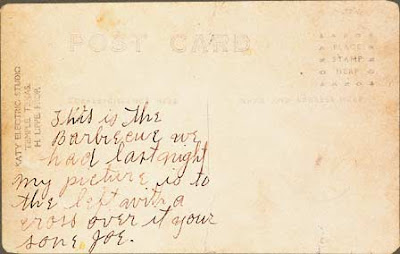 POST CARD
PLACE
STAMP
HERE
KATY ELECTRIC STUDIO
TEMPLE TEXAS.
H. LIPPE PROP.
This is the
Barbecue we
had last night
My picture is to
the left with a
cross over it your
sone Joe.